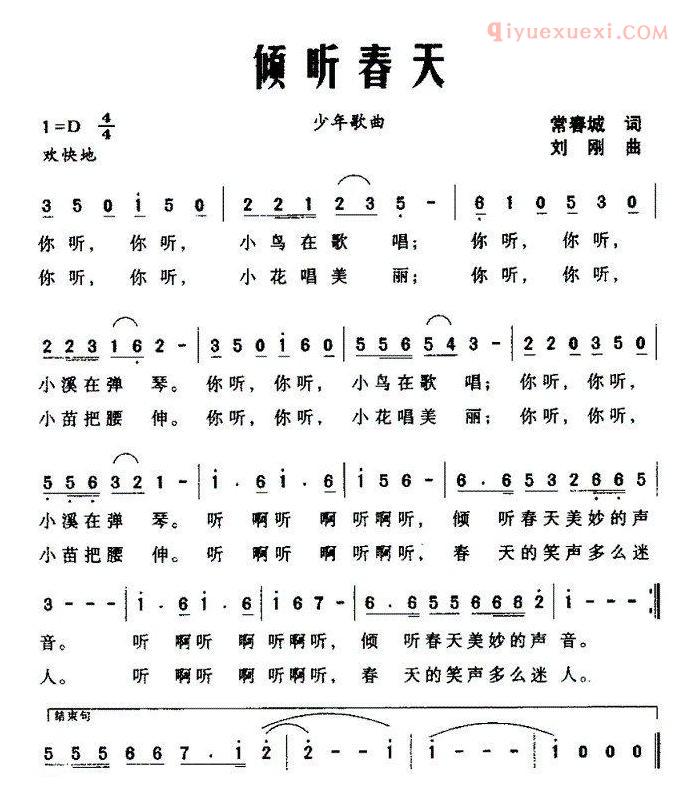 qiyuexuexi.com
倾听春天
1=D 4/4
少年歌曲
常春城 词
欢快地
刘刚 曲
3 5 0 i 5 0 | 2 2 1 2 3 5 - | 6 1 0 5 3 0 |
你听， 你听， 小鸟在歌 唱； 你听， 你听，
你听， 你听， 小花唱美 丽； 你听， 你听，
2 2 3 1 6 2 - | 3 5 0 i 6 0 | 5 5 6 5 4 3 - | 2 2 0 3 5 0 |
小溪在弹 琴。 你听， 你听， 小鸟在歌 唱； 你听， 你听，
小苗把腰 伸。 你听， 你听， 小花唱美 丽； 你听， 你听，
5 5 6 3 2 1 - | i . 6 i . 6 | i 5 6 - | 6 . 6 5 3 2 6 6 5 |
小溪在弹 琴。 听 啊听 啊 听啊听， 倾 听春天美妙的声
小苗把腰 伸。 听 啊听 啊 听啊听， 春 天的笑声多么迷
3 - - - | i . 6 i . 6 | i 6 7 - | 6 . 6 5 5 6 6 6 2 | i - - - :|
音。 听 啊听 啊 听啊听， 倾 听春天美妙的声 音。
人。 听 啊听 啊 听啊听， 春 天的笑声多么迷 人。
结束句
5 5 5 6 6 7 . i 2 | 2 - - i | i - - - | i 0 0 0 ‖